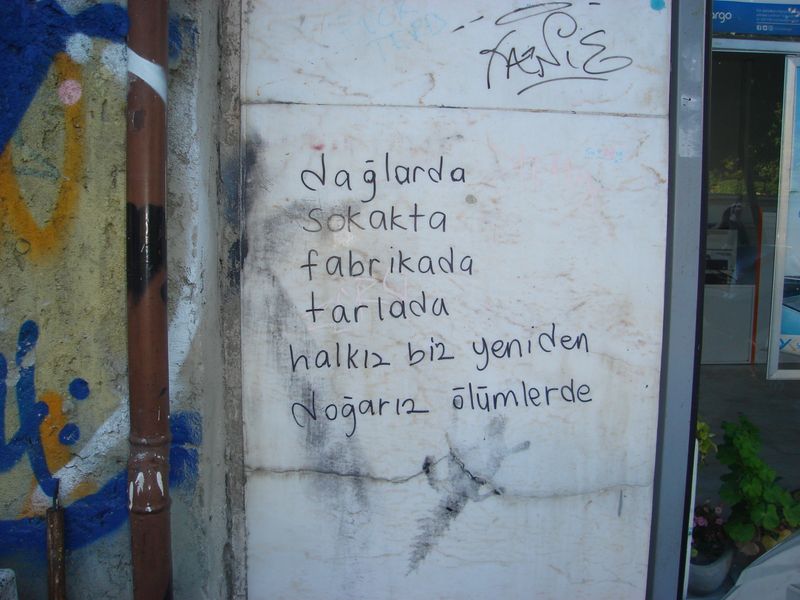 dağlarda
sokakta
fabrikada
tarlada
halkız biz yeniden
doğarız ölümlerde